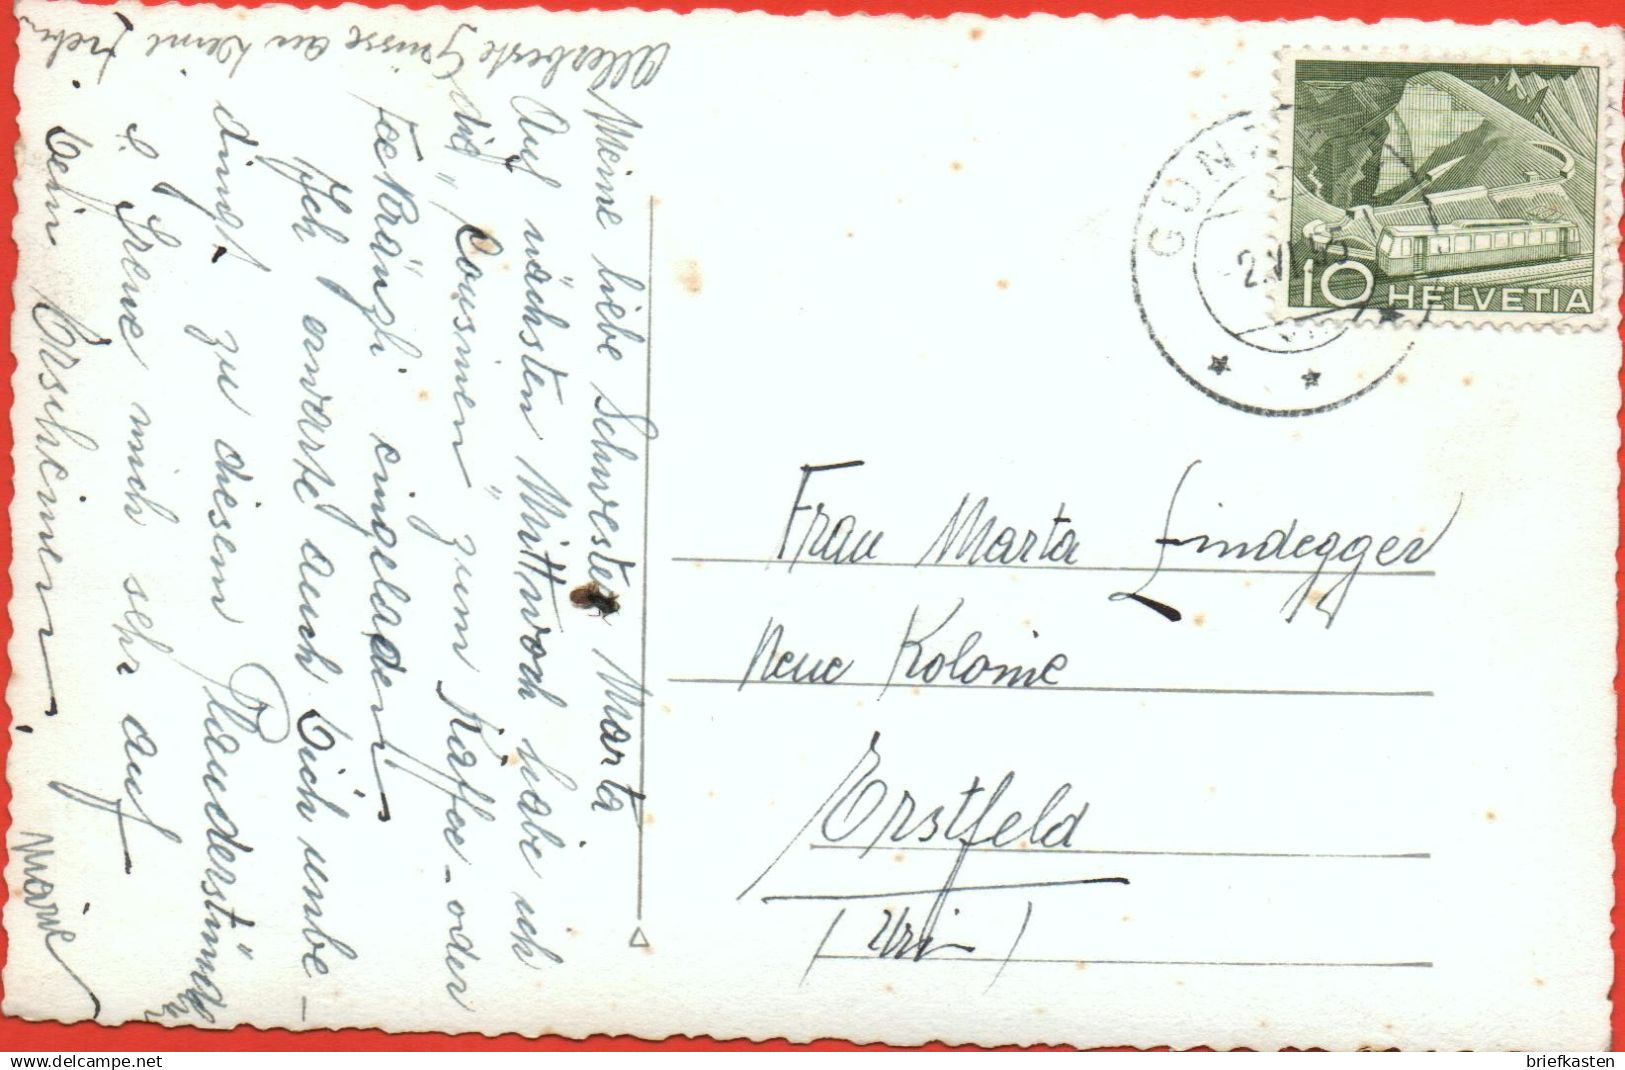 Meine liebe Schwester Marta
Auf nächsten Mittwoch habe ich
die „Cousinen" zum Kaffee - oder
Tee Kränzli eingeladen.
Ich erwarte auch Dich unbe-
dingt zu diesem Plauderstündchen
&. freue mich sehr auf
Dein Erscheinen.
Marie
Allerbeste Grüsse an
HELVETIA
10
GUN
2.VI.55
Frau Marta Lindegger
Neue Kolonie
Erstfeld
(Uri)
delcampe.net
briefkasten